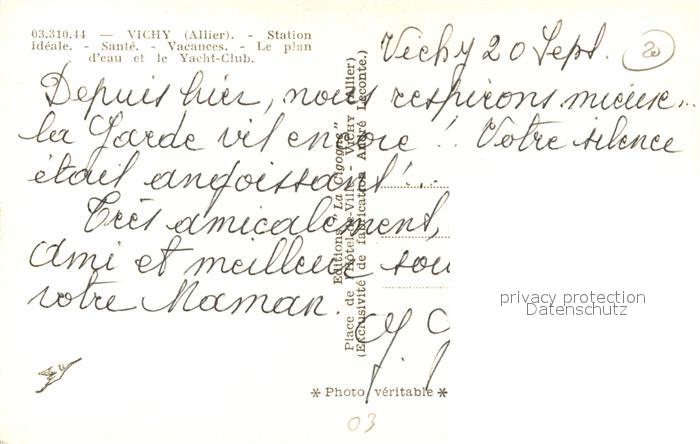 03.310.44 — VICHY (Allier). - Station
idéale. - Santé. - Vacances. - Le plan
d'eau et le Yacht-Club.
Vichy 20 Sept.
20
Depuis hier, nous respirons mieux...
la Garde vit encore !! Votre silence
était angoissant !...
Très amicalement,
Ami et meilleur sou
votre Maman.
Editions "La Cigogne"
Place de l'Hôtel-de-Ville - VICHY (Allier)
(Exclusivité de fabrication André Leconte.)
privacy protection
Datenschutz
* Photo véritable *
03